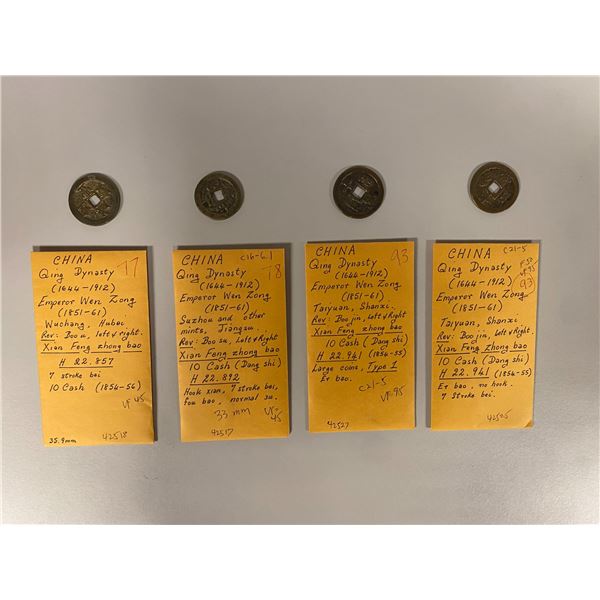 CHINA
77
Qing Dynasty
(1644-1912)
Emperor Wen Zong
(1851-61)
Wuchang, Hubei
Rev: Boo u, left & right.
Xian Feng zhong bao
H 22.857
7 stroke bei
10 Cash (1854-56)
VF 45
35.9mm
42518
CHINA
C16-6.1
Qing Dynasty
78
(1644-1912)
Emperor Wen Zong
(1851-61)
Suzhou and other
mints, Jiangsu.
Rev: Boo su, Left & Right
Xian Feng zhong bao
10 Cash (Dang shi)
H 22.892
Hook xian, 7 stroke bei,
fou bao, normal su.
33 mm
VF-
45
42517
CHINA
93
Qing Dynasty
(1644-1912)
Emperor Wen Zong
(1851-61)
Taiyuan, Shanxi.
Rev: Boo jin, Left & Right
Xian Feng zhong bao
10 Cash (Dang shi)
H 22.941 (1854-55)
Large coins, Type I
Er bao.
C21-5
VF-95
42527
CHINA
C21-5
Qing Dynasty
(1644-1912)
93
Emperor Wen Zong
(1851-61)
Taiyuan, Shanxi.
Rev: Boo jin, left & right
Xian Feng zhong bao
10 Cash (Dang shi)
H 22.941 (1854-55)
Er bao, no hook.
7 Stroke bei.
42505